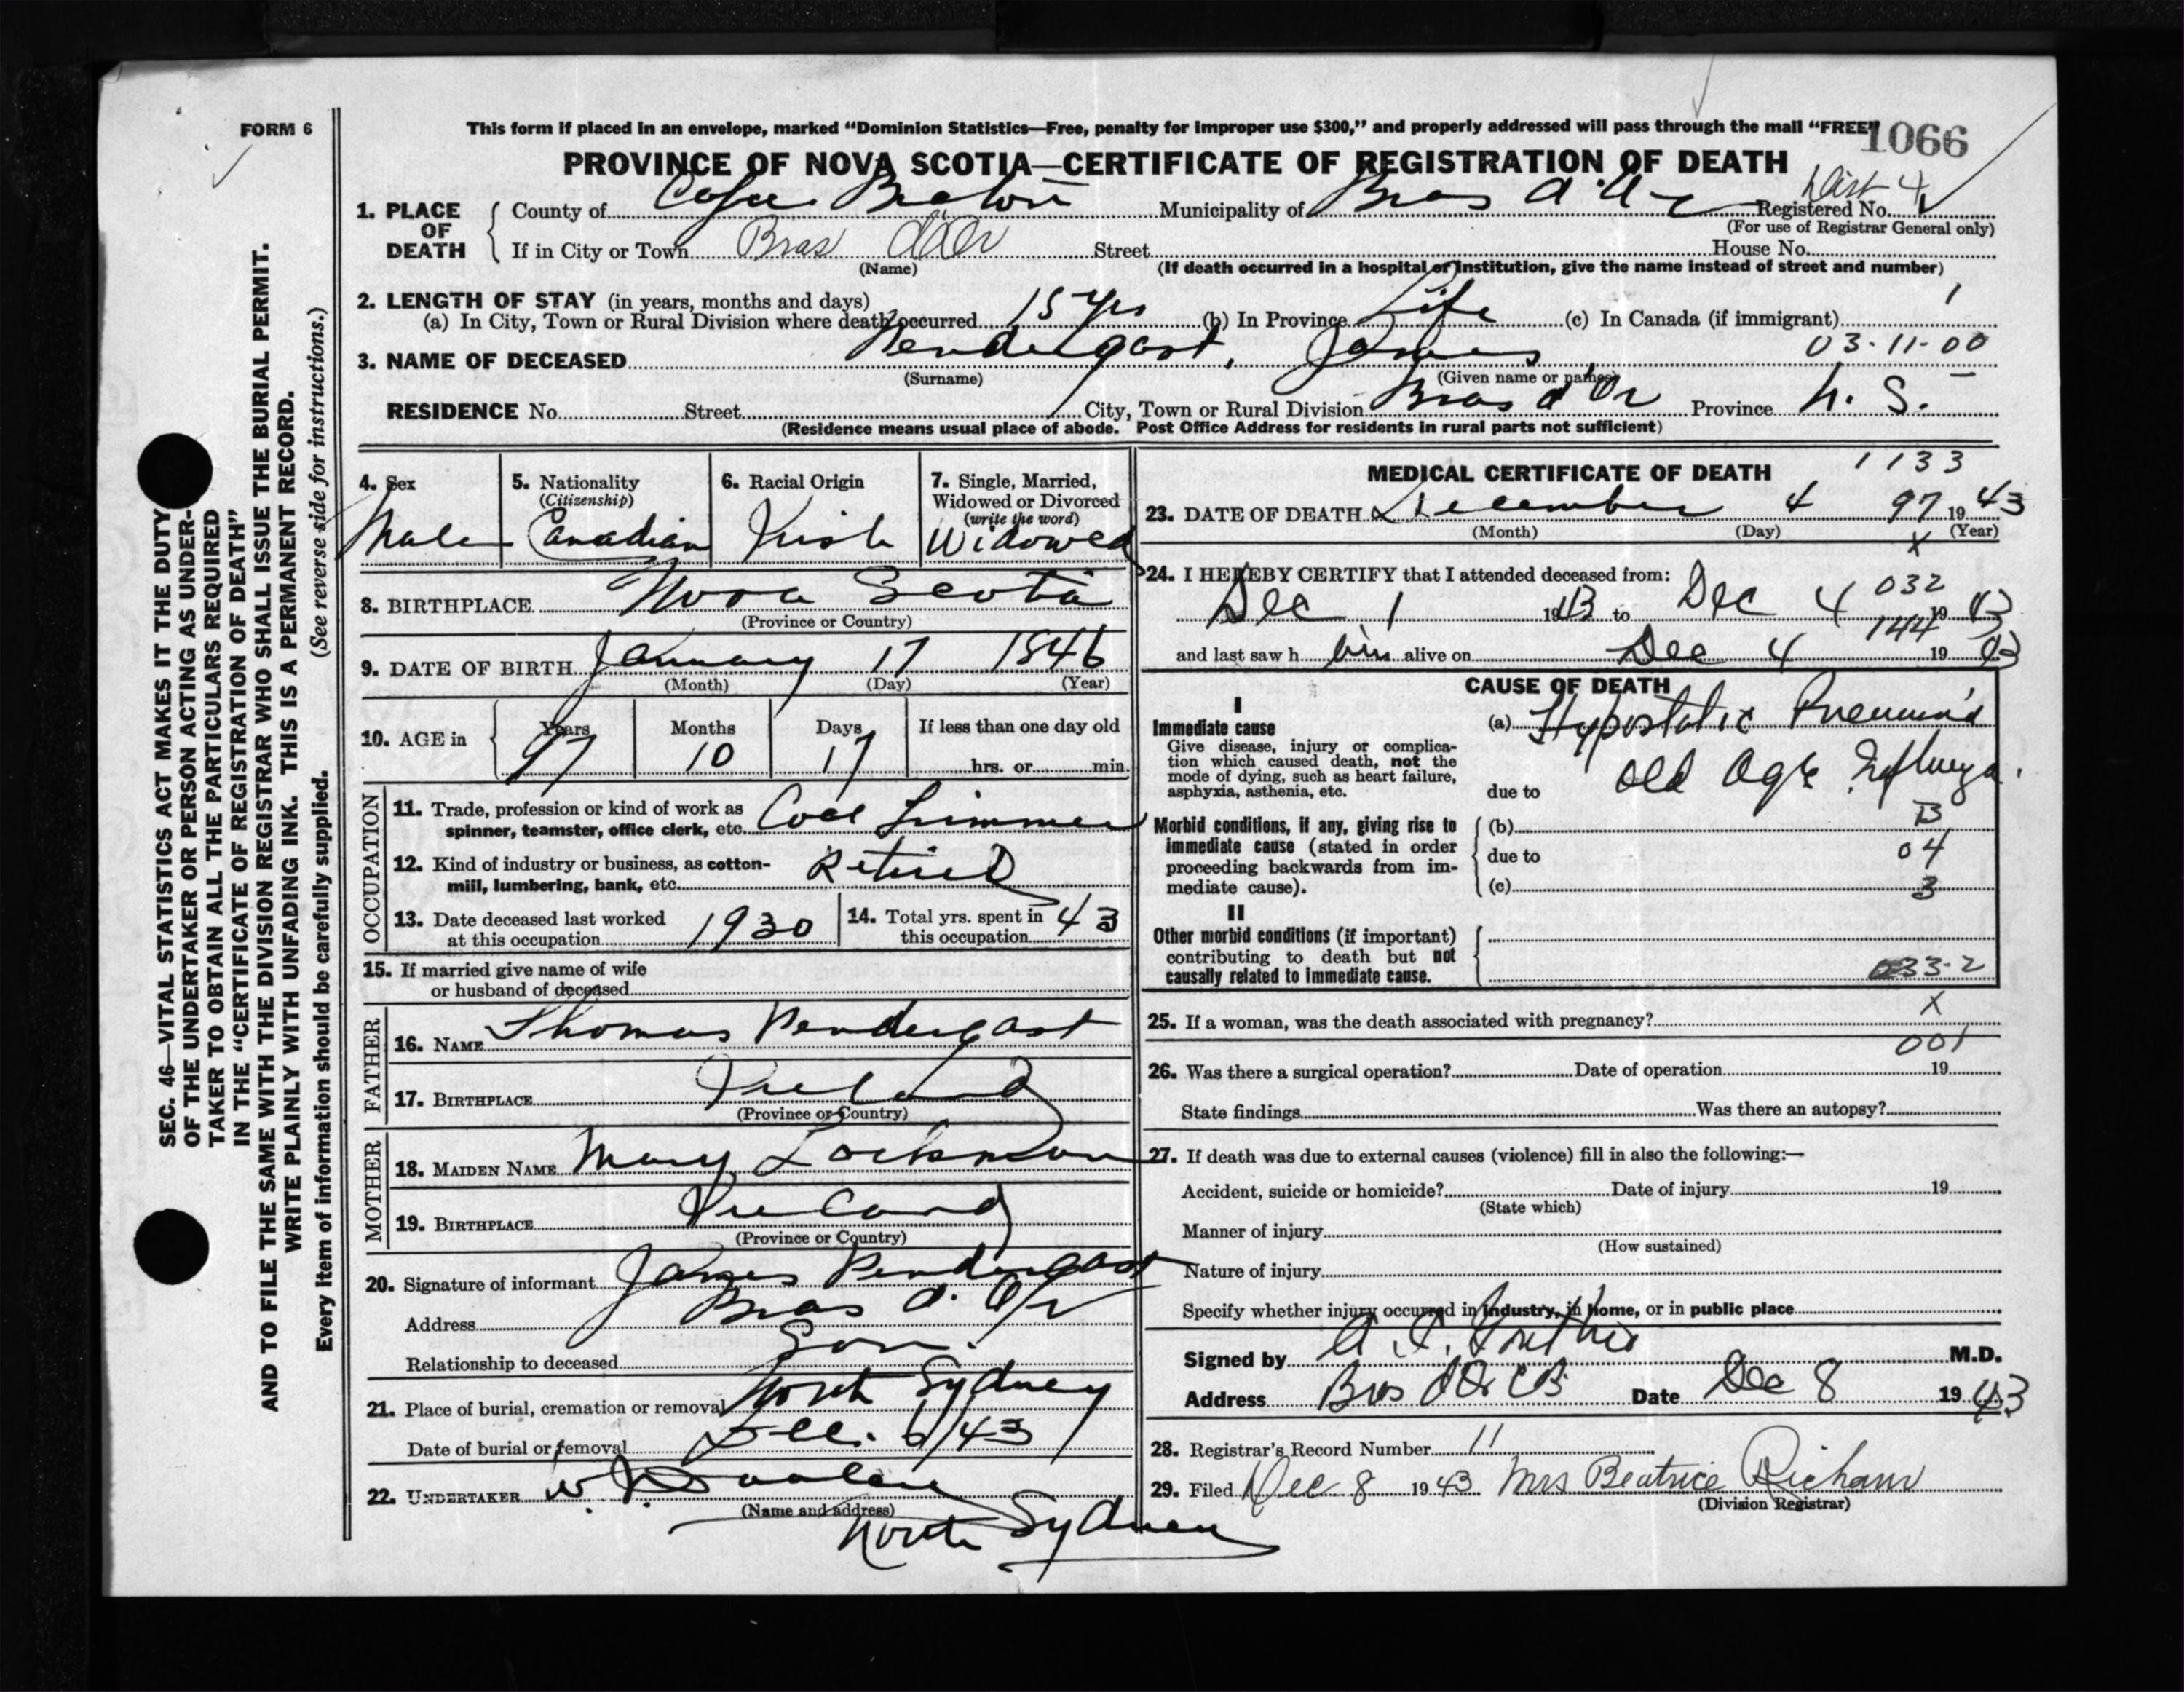 FORM 6
This form if placed in an envelope, marked “Dominion Statistics—Free, penalty for improper use $300,” and properly addressed will pass through the mail “FREE”
1066
PROVINCE OF NOVA SCOTIA—CERTIFICATE OF REGISTRATION OF DEATH
1. PLACE OF DEATH
County of Cape Breton Municipality of Bras d'Or Registered No. Dist 4
(For use of Registrar General only)
If in City or Town Bras d'Or Street House No.
(Name) (If death occurred in a hospital or institution, give the name instead of street and number)
2. LENGTH OF STAY (in years, months and days)
(a) In City, Town or Rural Division where death occurred 15 yrs (b) In Province Life (c) In Canada (if immigrant) 1
3. NAME OF DECEASED Pendergast, James 03-11-00
(Surname) (Given name or names)
RESIDENCE No. Street City, Town or Rural Division Bras d'Or Province N. S.
(Residence means usual place of abode. Post Office Address for residents in rural parts not sufficient)
4. Sex Male
5. Nationality (Citizenship) Canadian
6. Racial Origin Irish
7. Single, Married, Widowed or Divorced (write the word) Widowed
8. BIRTHPLACE Nova Scotia
(Province or Country)
9. DATE OF BIRTH January 17 1846
(Month) (Day) (Year)
10. AGE in Years Months Days If less than one day old
97 10 17 hrs. or min.
OCCUPATION
11. Trade, profession or kind of work as
spinner, teamster, office clerk, etc. Coal Trimmer
12. Kind of industry or business, as cotton-
mill, lumbering, bank, etc. Retired
13. Date deceased last worked
at this occupation 1930
14. Total yrs. spent in
this occupation 43
15. If married give name of wife
or husband of deceased
FATHER
16. NAME Thomas Pendergast
17. BIRTHPLACE Ireland
(Province or Country)
MOTHER
18. MAIDEN NAME Mary Lockman
19. BIRTHPLACE Ireland
(Province or Country)
20. Signature of informant James Pendergast
Address Bras d'Or
Relationship to deceased Son.
21. Place of burial, cremation or removal North Sydney
Date of burial or removal Dec. 6/43
22. UNDERTAKER W.
(Name and address)
North Sydney
MEDICAL CERTIFICATE OF DEATH 1133
23. DATE OF DEATH December 4 97 1943
(Month) (Day) (Year)
X
24. I HEREBY CERTIFY that I attended deceased from:
032
Dec 1 1943 to Dec 4 1943
144
and last saw h im alive on Dec 4 1943
CAUSE OF DEATH
I
Immediate cause
Give disease, injury or complica-
tion which caused death, not the
mode of dying, such as heart failure,
asphyxia, asthenia, etc.
(a) Hypostatic Pneumonia
due to Old Age Influenza.
Morbid conditions, if any, giving rise to
immediate cause (stated in order
proceeding backwards from im-
mediate cause).
(b) B
due to 04
(c) 3
II
Other morbid conditions (if important)
contributing to death but not
causally related to immediate cause.
033-2
X
25. If a woman, was the death associated with pregnancy?
001
26. Was there a surgical operation? Date of operation 19
State findings Was there an autopsy?
27. If death was due to external causes (violence) fill in also the following:—
Accident, suicide or homicide? Date of injury 19
(State which)
Manner of injury
(How sustained)
Nature of injury
Specify whether injury occurred in industry, in home, or in public place
Signed by A. M.D.
Address Bras d'Or CB Date Dec 8 1943
28. Registrar's Record Number 11
29. Filed Dec 8 1943 Mrs Beatrice
(Division Registrar)
SEC. 46—VITAL STATISTICS ACT MAKES IT THE DUTY
OF THE UNDERTAKER OR PERSON ACTING AS UNDER-
TAKER TO OBTAIN ALL THE PARTICULARS REQUIRED
IN THE “CERTIFICATE OF REGISTRATION OF DEATH”
AND TO FILE THE SAME WITH THE DIVISION REGISTRAR WHO SHALL ISSUE THE BURIAL PERMIT.
WRITE PLAINLY WITH UNFADING INK. THIS IS A PERMANENT RECORD.
Every item of information should be carefully supplied. (See reverse side for instructions.)